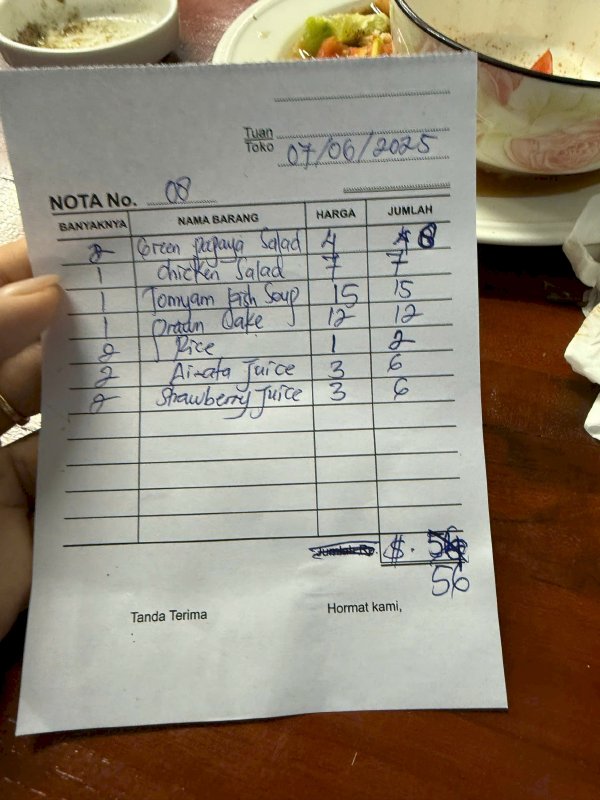 Tuan
Toko 07/06/2025
NOTA No. 08
BANYAKNYA NAMA BARANG HARGA JUMLAH
2 Green papaya Salad 4 8
1 Chicken Salad 7 7
1 Tomyam Fish Soup 15 15
1 prawn Cake 12 12
2 Rice 1 2
2 Juice 3 6
2 Strawberry Juice 3 6
Jumlah Rp. $.
56
Tanda Terima Hormat kami,